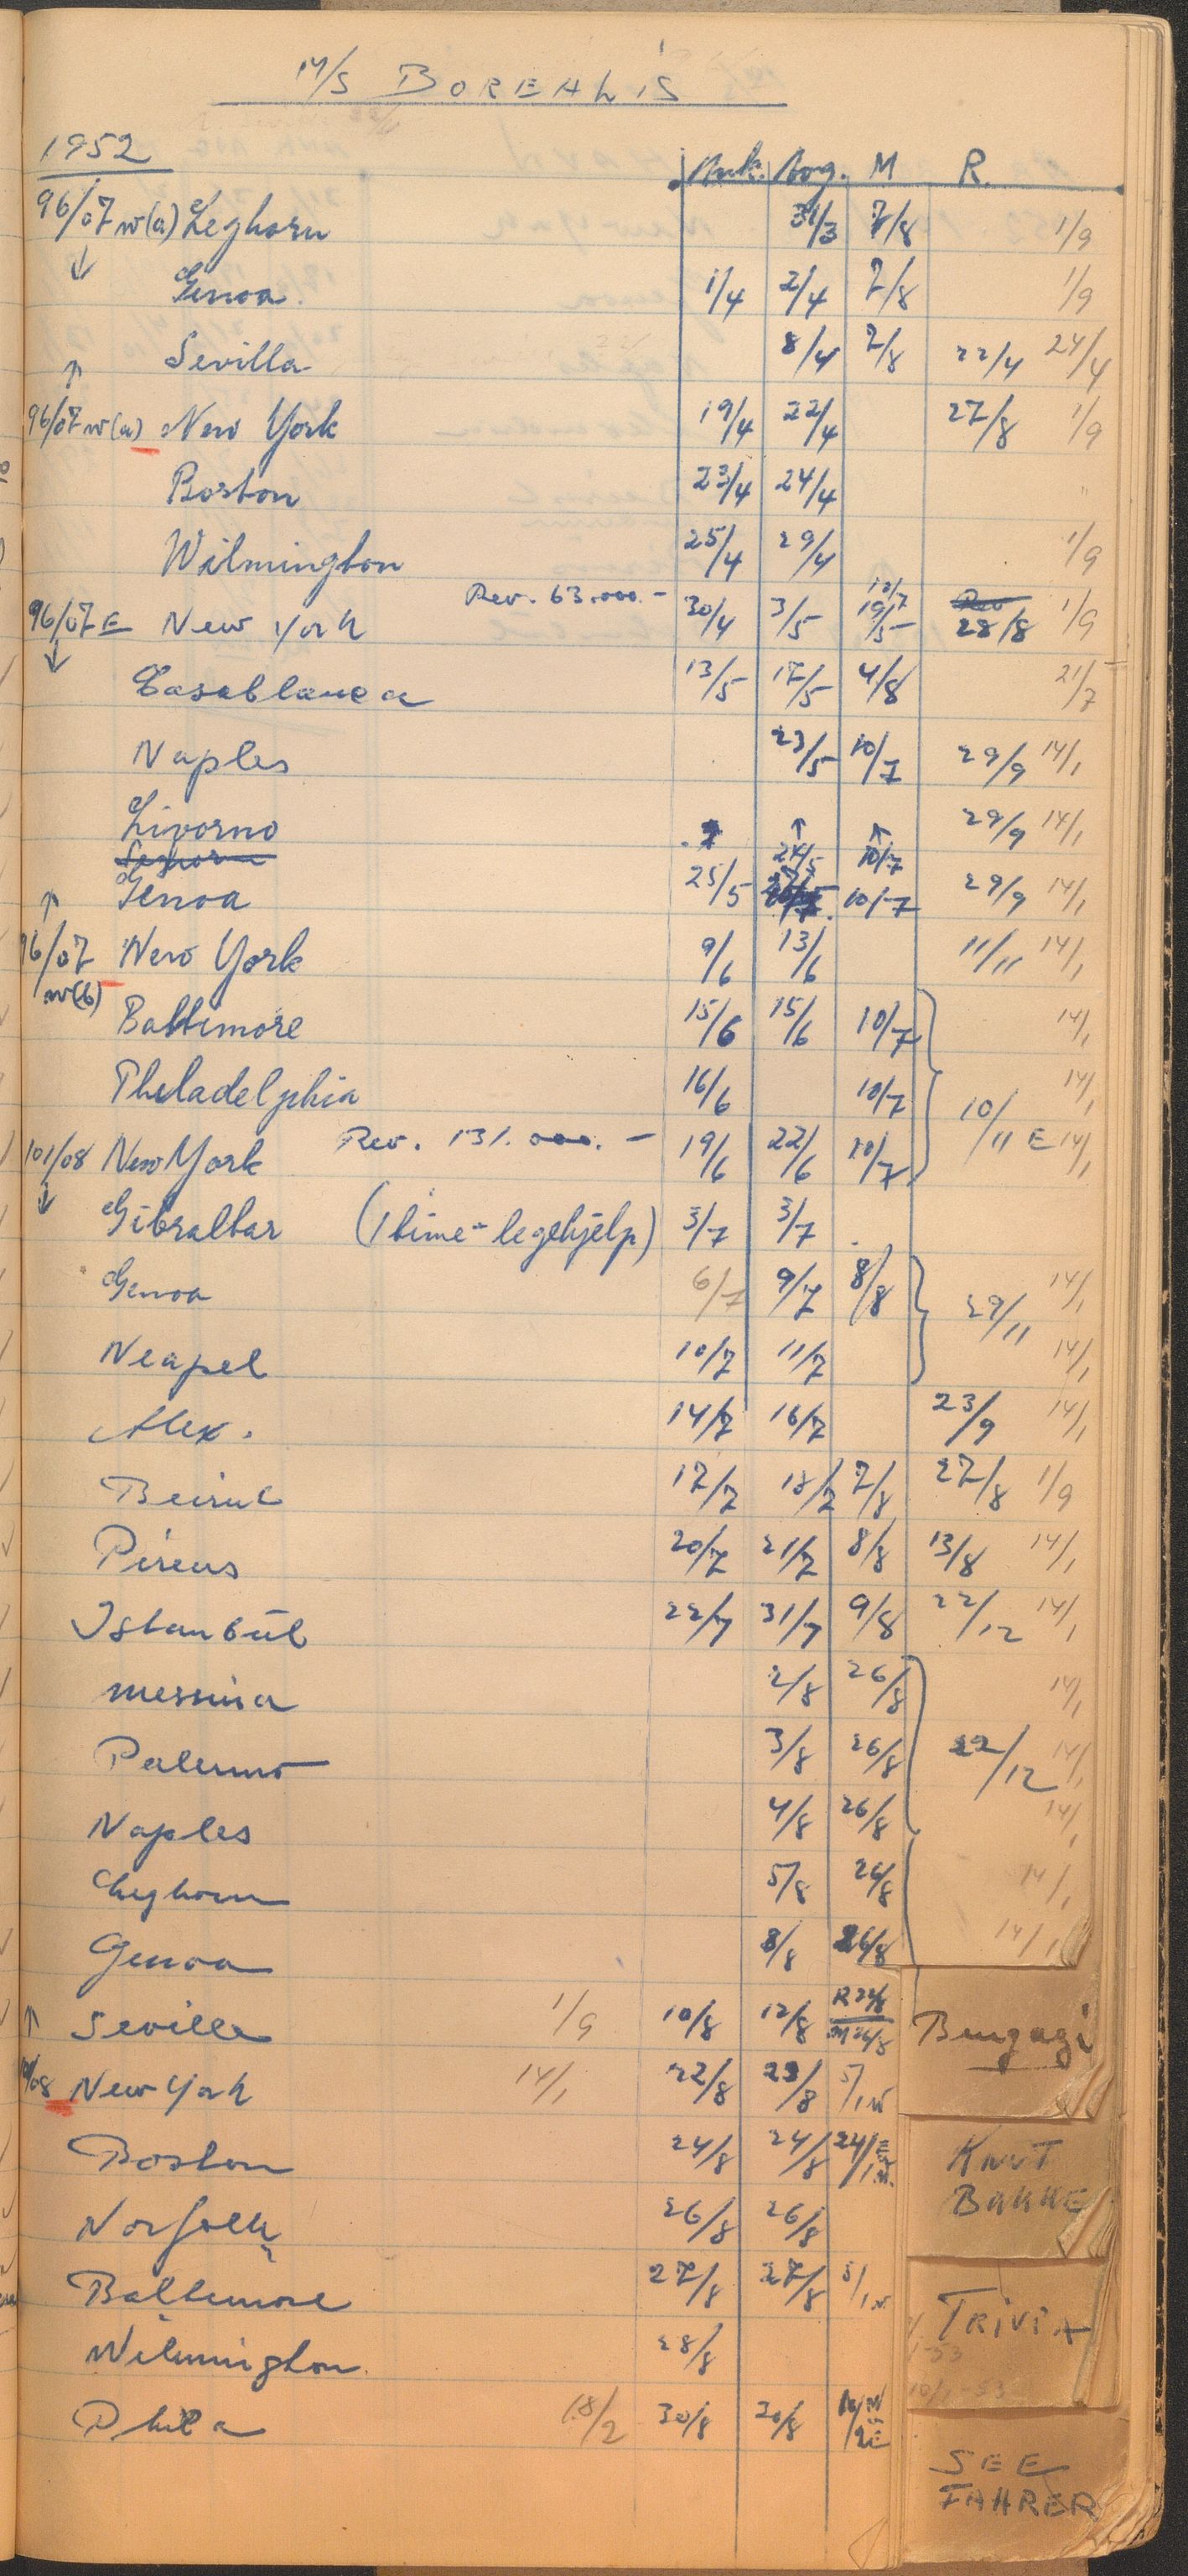 M/S BOREALIS
1952
Ank. Avg. M R.
96/07 w(a) Leghorn 31/3 7/8 1/9
↓ Genoa. 1/4 2/4 7/8 1/9
↑ Sevilla 8/4 7/8 22/4 24/4
96/07 w(a) New York 19/4 22/4 27/8 1/9
Boston 23/4 24/4 "
Wilmington 25/4 29/4 1/9
96/07 E New York Rev. 63.000.- 30/4 3/5 19/5 28/8 1/9
↓ Casablanca 13/5 17/5 4/8 21/7
Naples 23/5 10/7 29/9 14/1
Livorno ↑ 24/5 ↑ 10/7 29/9 14/1
Leghorn
↑ Genoa 25/5 10/7 29/9 14/1
96/07 w(b) New York 9/6 13/6 11/11 14/1
Baltimore 15/6 15/6 10/7 14/1
Philadelphia 16/6 10/7 10/11 E 14/1
101/08 New York Rev. 131.000.- 19/6 22/6 10/7 14/1
↓ Gibraltar (1 time - legehjelp) 3/7 3/7
Genoa 6/7 9/7 8/8 29/11 14/1
Neapel 10/7 11/7 14/1
Alex. 14/7 16/7 23/9 14/1
Beirut 17/7 18/7 7/8 27/8 1/9
Pireus 20/7 21/7 8/8 13/8 14/1
Istanbúl 22/7 31/7 9/8 22/12 14/1
Messina 2/8 26/8 14/1
Palermo 3/8 26/8 22/12 14/1
Naples 4/8 26/8 14/1
Leghorn 5/8 26/8 14/1
Genoa 8/8 26/8 14/1
↑ Seville 1/9 10/8 12/8 R 22/8 M 26/8 Bengazi
/08 New York 14/1 22/8 23/8 5/1 w
Boston 24/8 24/8 24/1 KNUT
Norfolk 26/8 26/8 BAKKE
Baltimore 27/8 27/8 5/1 w. TRIVIA
Wilmington. 28/8
Phila 18/2 30/8 30/8
SEE
FAHRER